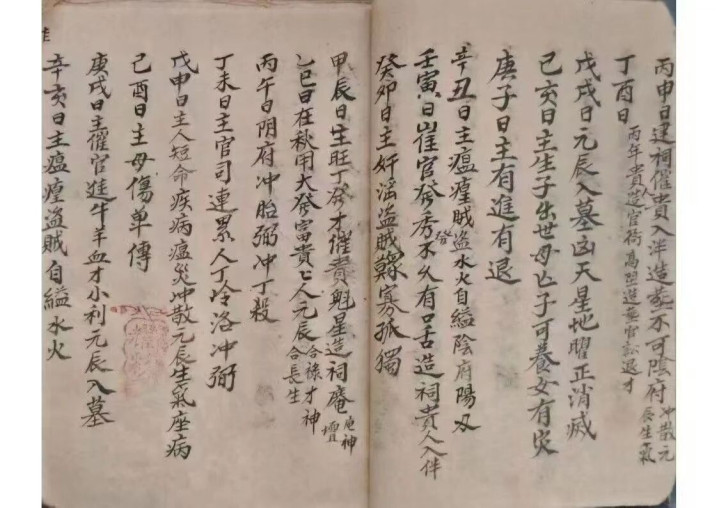 丙申日建祠催貴入泮造葬不可陰府冲散元辰生氣
丁酉日丙年貴造官衙高墅造葬官訟退才
戊戌日元辰入墓凶天星地曜正消滅
己亥日主生子出世母亡子可養女有灾
庚子日主有進有退
辛丑日主瘟瘟賊盗水火自縊陰府陽刄
壬寅日崔官發秀不久有口舌造祠貴人入伴
癸卯日主奸滛盗賊鰥寡孤獨
甲辰日主旺丁發才催貴魁星造祠庵庙神壇
乙巳日在秋用大發富貴亡人元辰合祿才神合長生
丙午日阴府冲胎弼冲丁殺
丁未日主官司連累人丁冷洛冲弼
戊申日主人短命疾病瘟災冲散元辰生氣座病
己酉日主母傷单傳
庚戌日主催官進牛羊血才小利元辰入墓
辛亥日主瘟瘟盗賊自縊水火